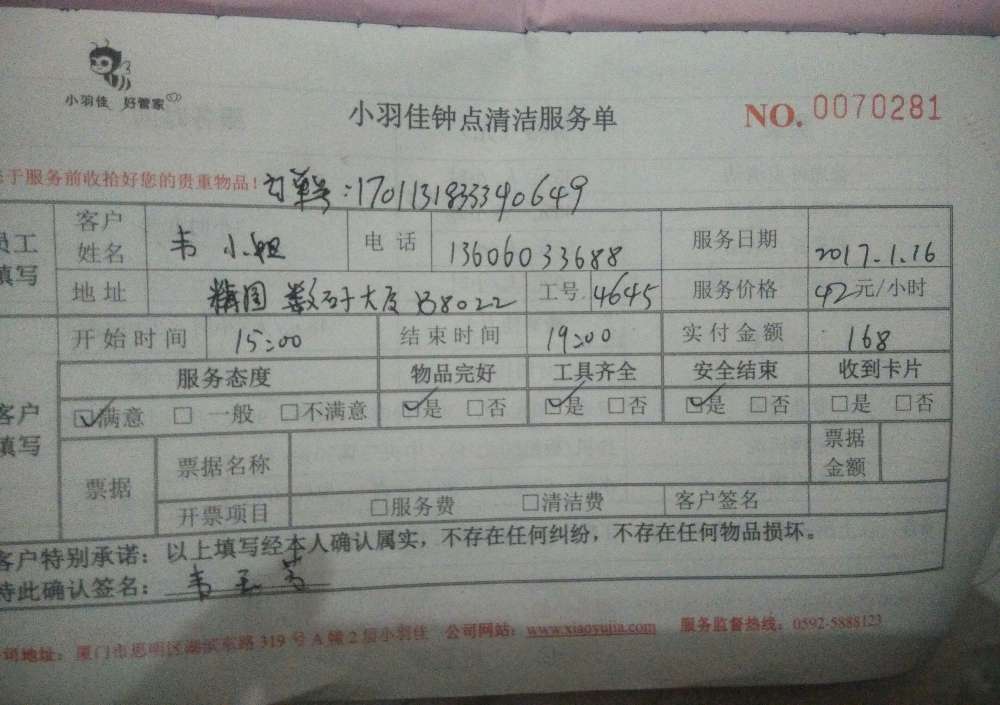 小羽佳 好管家
小羽佳钟点清洁服务单
NO. 0070281
于服务前收拾好您的贵重物品！订单号：170113183340649
员工填写 客户姓名 韦小姐 电话 13606033688 服务日期 2017.1.16
地址 数码大厦 B8022 工号 4645 服务价格 42元/小时
客户填写 开始时间 15:00 结束时间 19:00 实付金额 168
服务态度 物品完好 工具齐全 安全结束 收到卡片
☑满意 □一般 □不满意 ☑是 □否 ☑是 □否 ☑是 □否 □是 □否
票据 票据名称 票据金额
开票项目 □服务费 □清洁费 客户签名
客户特别承诺：以上填写经本人确认属实，不存在任何纠纷，不存在任何物品损坏。
特此确认签名：韦玉
司地址：厦门市思明区湖滨东路319号A幢2层小羽佳 公司网站：www.xiaoyujia.com 服务监督热线：0592-5888123